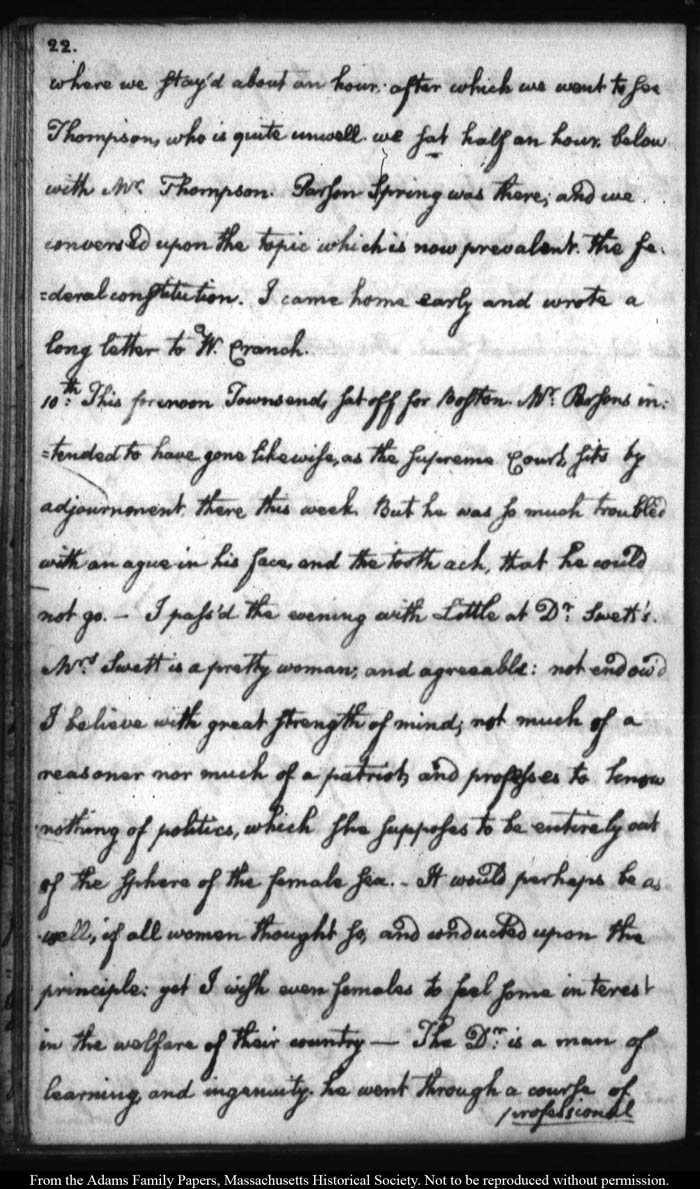 22.
where we stay'd about an hour. after which we went to see
Thompson, who is quite unwell. we sat half an hour, below
with Mr. Thompson. Parson Spring was there; and we
convers'd upon the topic which is now prevalent. the fe-
=deral constitution. I came home early and wrote a
long letter to W. Cranch.
10th: This forenoon Townsend, sat off for Boston. Mr. Parsons in:
=tended to have gone likewise, as the supreme Court, sits by
adjournment, there this week. But he was so much troubled
with an ague in his face, and the tooth ach, that he could
not go. — I pass'd the evening with Little at Dr. Swett's.
Mrs. Swett is a pretty woman; and agreeable: not endow'd
I believe with great strength of mind; not much of a
reasoner nor much of a patriot, and professes to know
nothing of politics, which she supposes to be entirely out
of the sphere of the female sex. — It would perhaps be as
well, if all women thought so, and conducted upon the
principle: yet I wish even females to feel some interest
in the welfare of their country — The Dr. is a man of
learning, and ingenuity. he went through a course of
professional
From the Adams Family Papers, Massachusetts Historical Society. Not to be reproduced without permission.